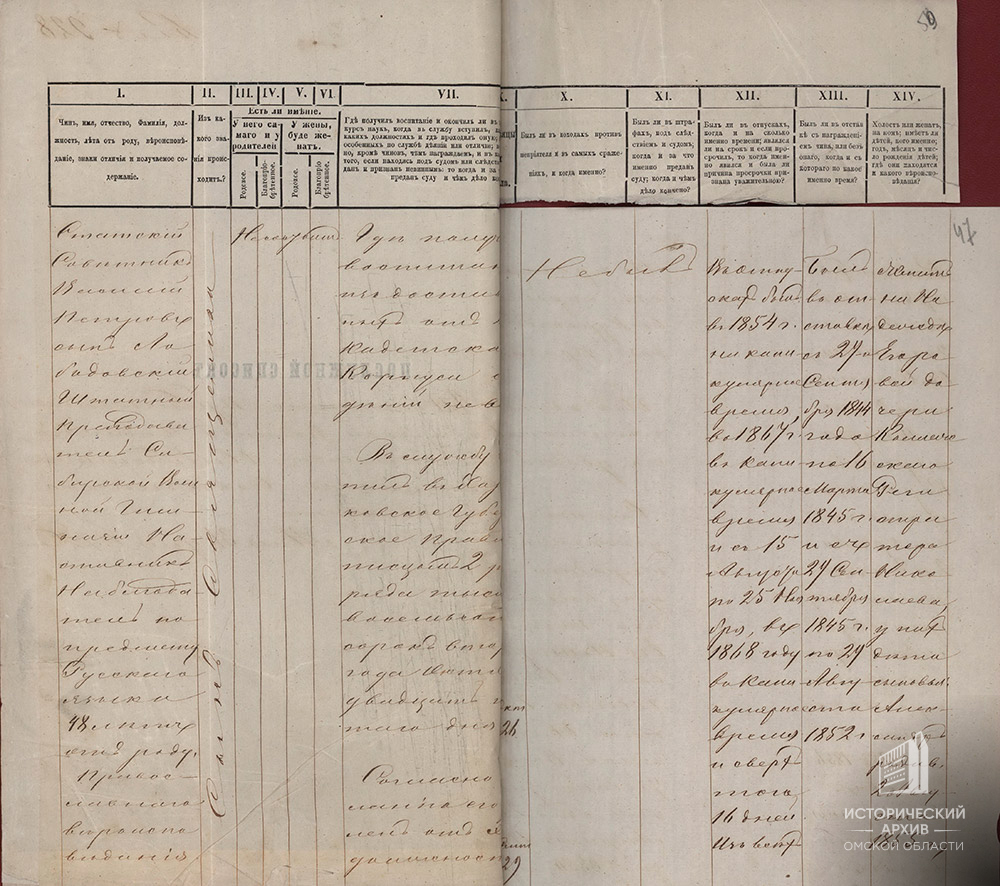 59
47
I.
II.
III.
IV.
V.
VI.
VII.
X.
XI.
XII.
XIII.
XIV.
Чинъ, имя, отчество, Фамилія, дол-
жность, лѣта отъ роду, вѣроиспо-
вѣданіе, знаки отличія и получаемое со-
держаніе.
Изъ ка-
кого зва-
нія проис-
ходитъ?
Есть ли имѣніе.
У него са-
маго и у
родителей
У жены,
буде же-
натъ.
Родовое.
Благопріо-
брѣтенное.
Родовое.
Благопріо-
брѣтенное.
Гдѣ получилъ воспитаніе и окончилъ ли въ
курсъ наукъ, когда въ службу вступилъ,
какихъ должностяхъ и гдѣ проходилъ оную
особенныхъ по службѣ дѣяній или отличіе;
но, кромѣ чиновъ, чѣмъ награжденъ; и въ
того, если находясь подъ судомъ или слѣдст
данъ и признанъ невиннымъ: то когда и за
преданъ суду и чѣмъ дѣло ко
Былъ ли въ походахъ противъ
непріятеля и въ самыхъ сраже-
ніяхъ, и когда именно?
Былъ ли въ штра-
фахъ, подъ слѣд-
ствіемъ и судомъ;
когда и за что
именно преданъ
суду; когда и чѣмъ
дѣло кончено?
Былъ ли въ отпускахъ,
когда и на сколько
именно времени; являлся
ли на срокъ и если про-
срочилъ, то когда имен-
но явился и была ли
причина просрочки при-
знана уважительною?
Былъ ли въ отста-
вкѣ съ награжденіе-
емъ чина, или безъ
онаго, когда и съ
котораго по какое
именно время?
Холостъ или женатъ,
на комъ; имѣетъ ли
дѣтей, кого именно;
годъ, мѣсяцъ и чис-
ло рожденія дѣтей;
гдѣ они находятся
и какого вѣроиспо-
вѣданія?
Статскій
Совѣтникъ
Василій
Петровъ
сынъ Ло
бадовскій
Штатный
Преподава
тель Си-
бирской Воен
ной Гим-
назіи На-
ставникъ
Наблюда-
тель по
предмету
Русскаго
языка
48 лѣтъ
отъ роду,
Правос-
лавнаго
вѣроиспо-
вѣданія
Сынъ Священника
Гдѣ полу
воспитан
Кадетска
Корпуса
Въ службу
ковское Губе
ское Правл
писцомъ 2
ряда тыся
сорокъ вто
года Іюля
двадцать
таго дня
26
Согласно
должност
29
Не былъ
Въ отпу-
скахъ былъ
въ 1854 г.
на кани-
кулярное
время,
въ 1867 г.
въ кани
кулярное
время
и съ 15
Августа
по 25 Ноя
бря, въ
1868 году
въ кани
кулярное
время
и сверхъ
того,
16 дней
Былъ
въ от-
ставкѣ
съ 27-го
Сентя
бря 1844
года
по 16
Марта
1845 г.
и съ
27 Сен-
тября
1845 г.
по 24
Авгу-
ста
1852 г.
Женатъ
на На
деждѣ
Егоро
вой до
чери
Коллеж
скаго
Реги
стра
тора
Нико
лаева,
у нихъ
дѣти
сыновья:
Алек-
ПОСЛУЖНОЙ СПИСОКЪ
ИСТОРИЧЕСКИЙ
АРХИВ
ОМСКОЙ ОБЛАСТИ